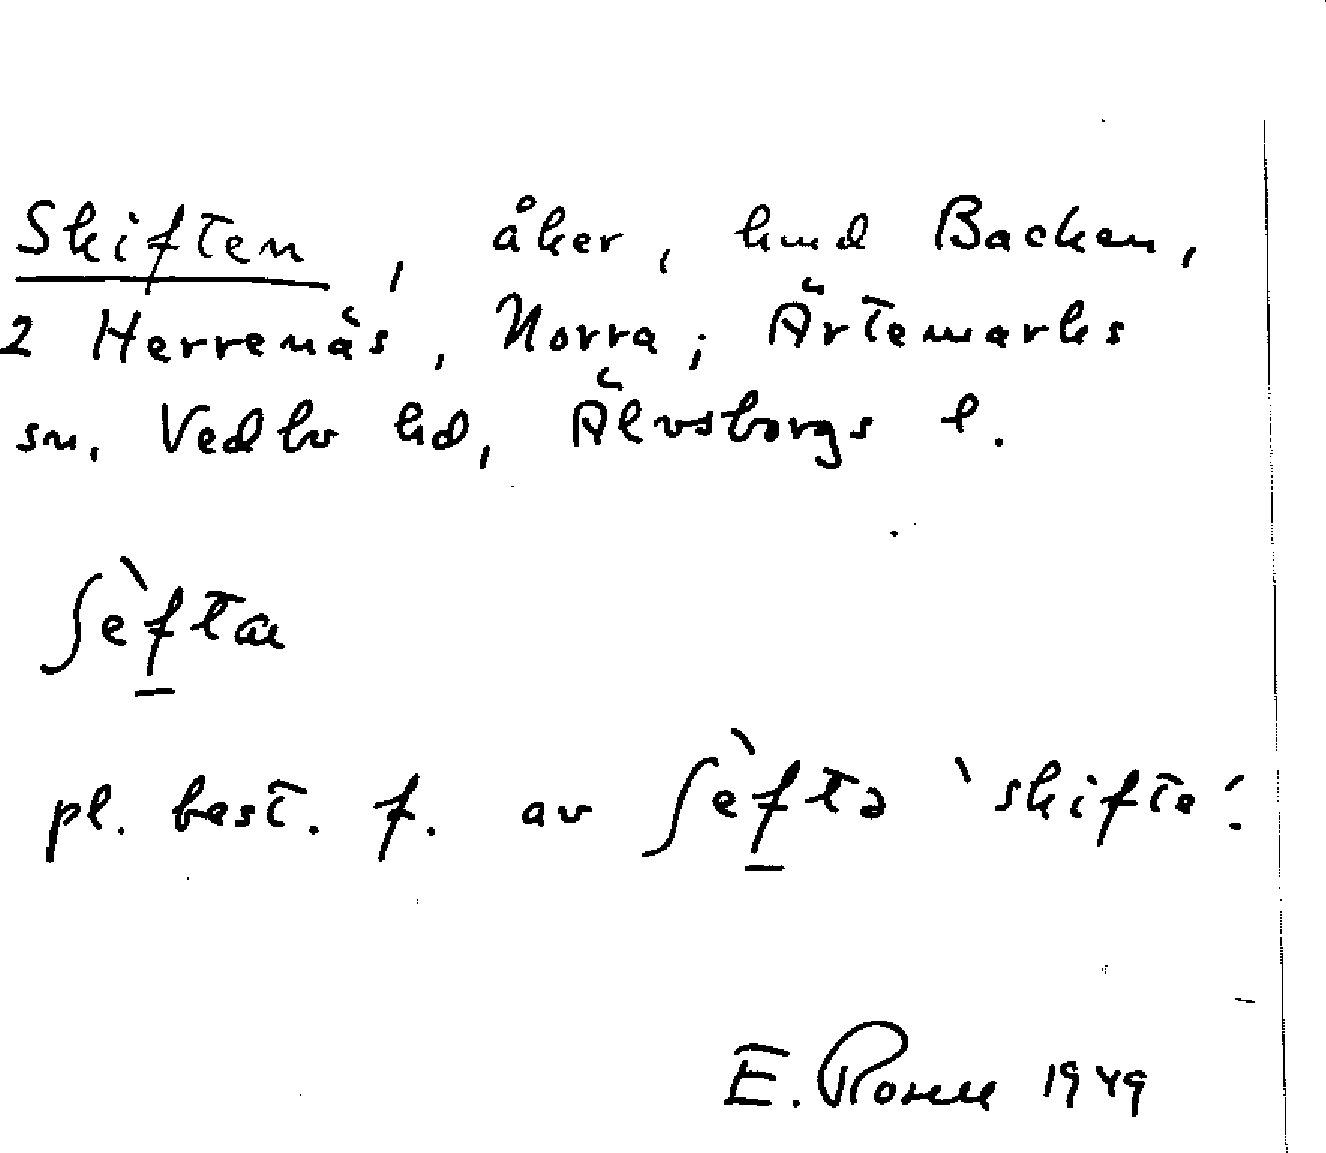 Skiften, åker, hmd Backen,
2 Herrenäs, Norra; Ärtemarks
sn. Vedbo hd, Älvsborgs l.
ʃèfta
pl. best. f. av ʃèftə 'skifte'.
E. 1949